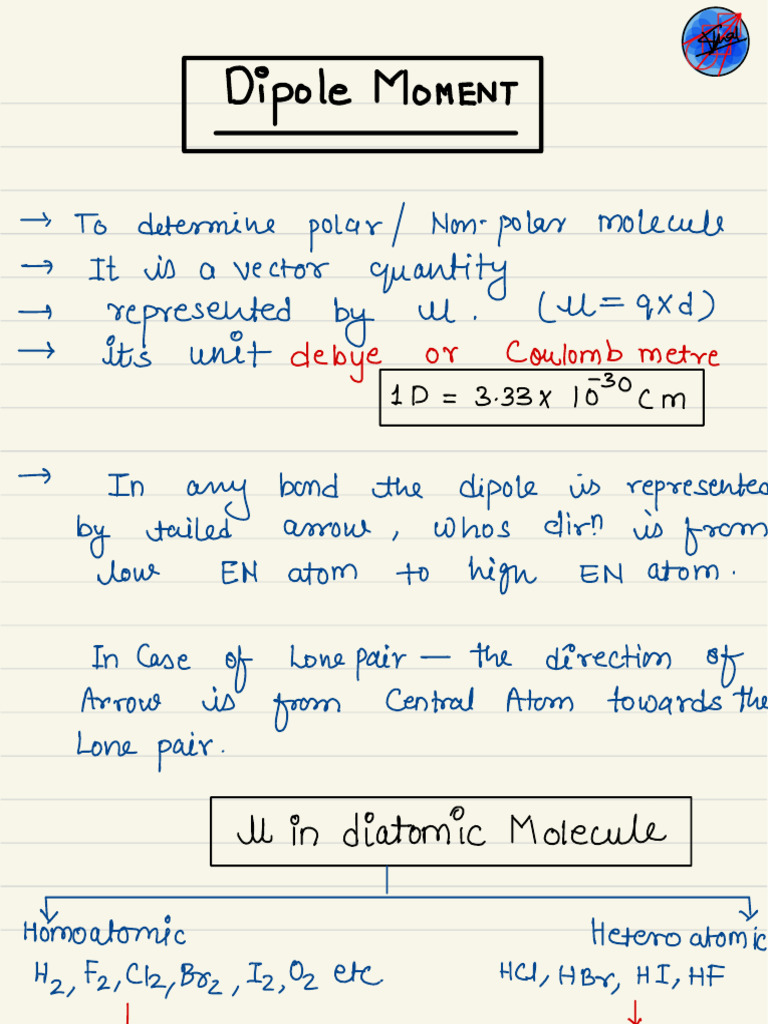 Dipole MOMENT
→ To determine polar/ Non-polar molecule
→ It is a vector quantity
→ represented by μ. (μ = q×d)
→ its unit debye or Coulomb metre
1 D = 3.33 × 10⁻³⁰ C m
→ In any bond the dipole is represented
by tailed arrow, whos dirⁿ is from
low EN atom to high EN atom.
In Case of Lone pair — the direction of
Arrow is from Central Atom towards the
Lone pair.
μ in diatomic Molecule
Homoatomic Heteroatomic
H₂, F₂, Cl₂, Br₂, I₂, O₂ etc HCl, HBr, HI, HF